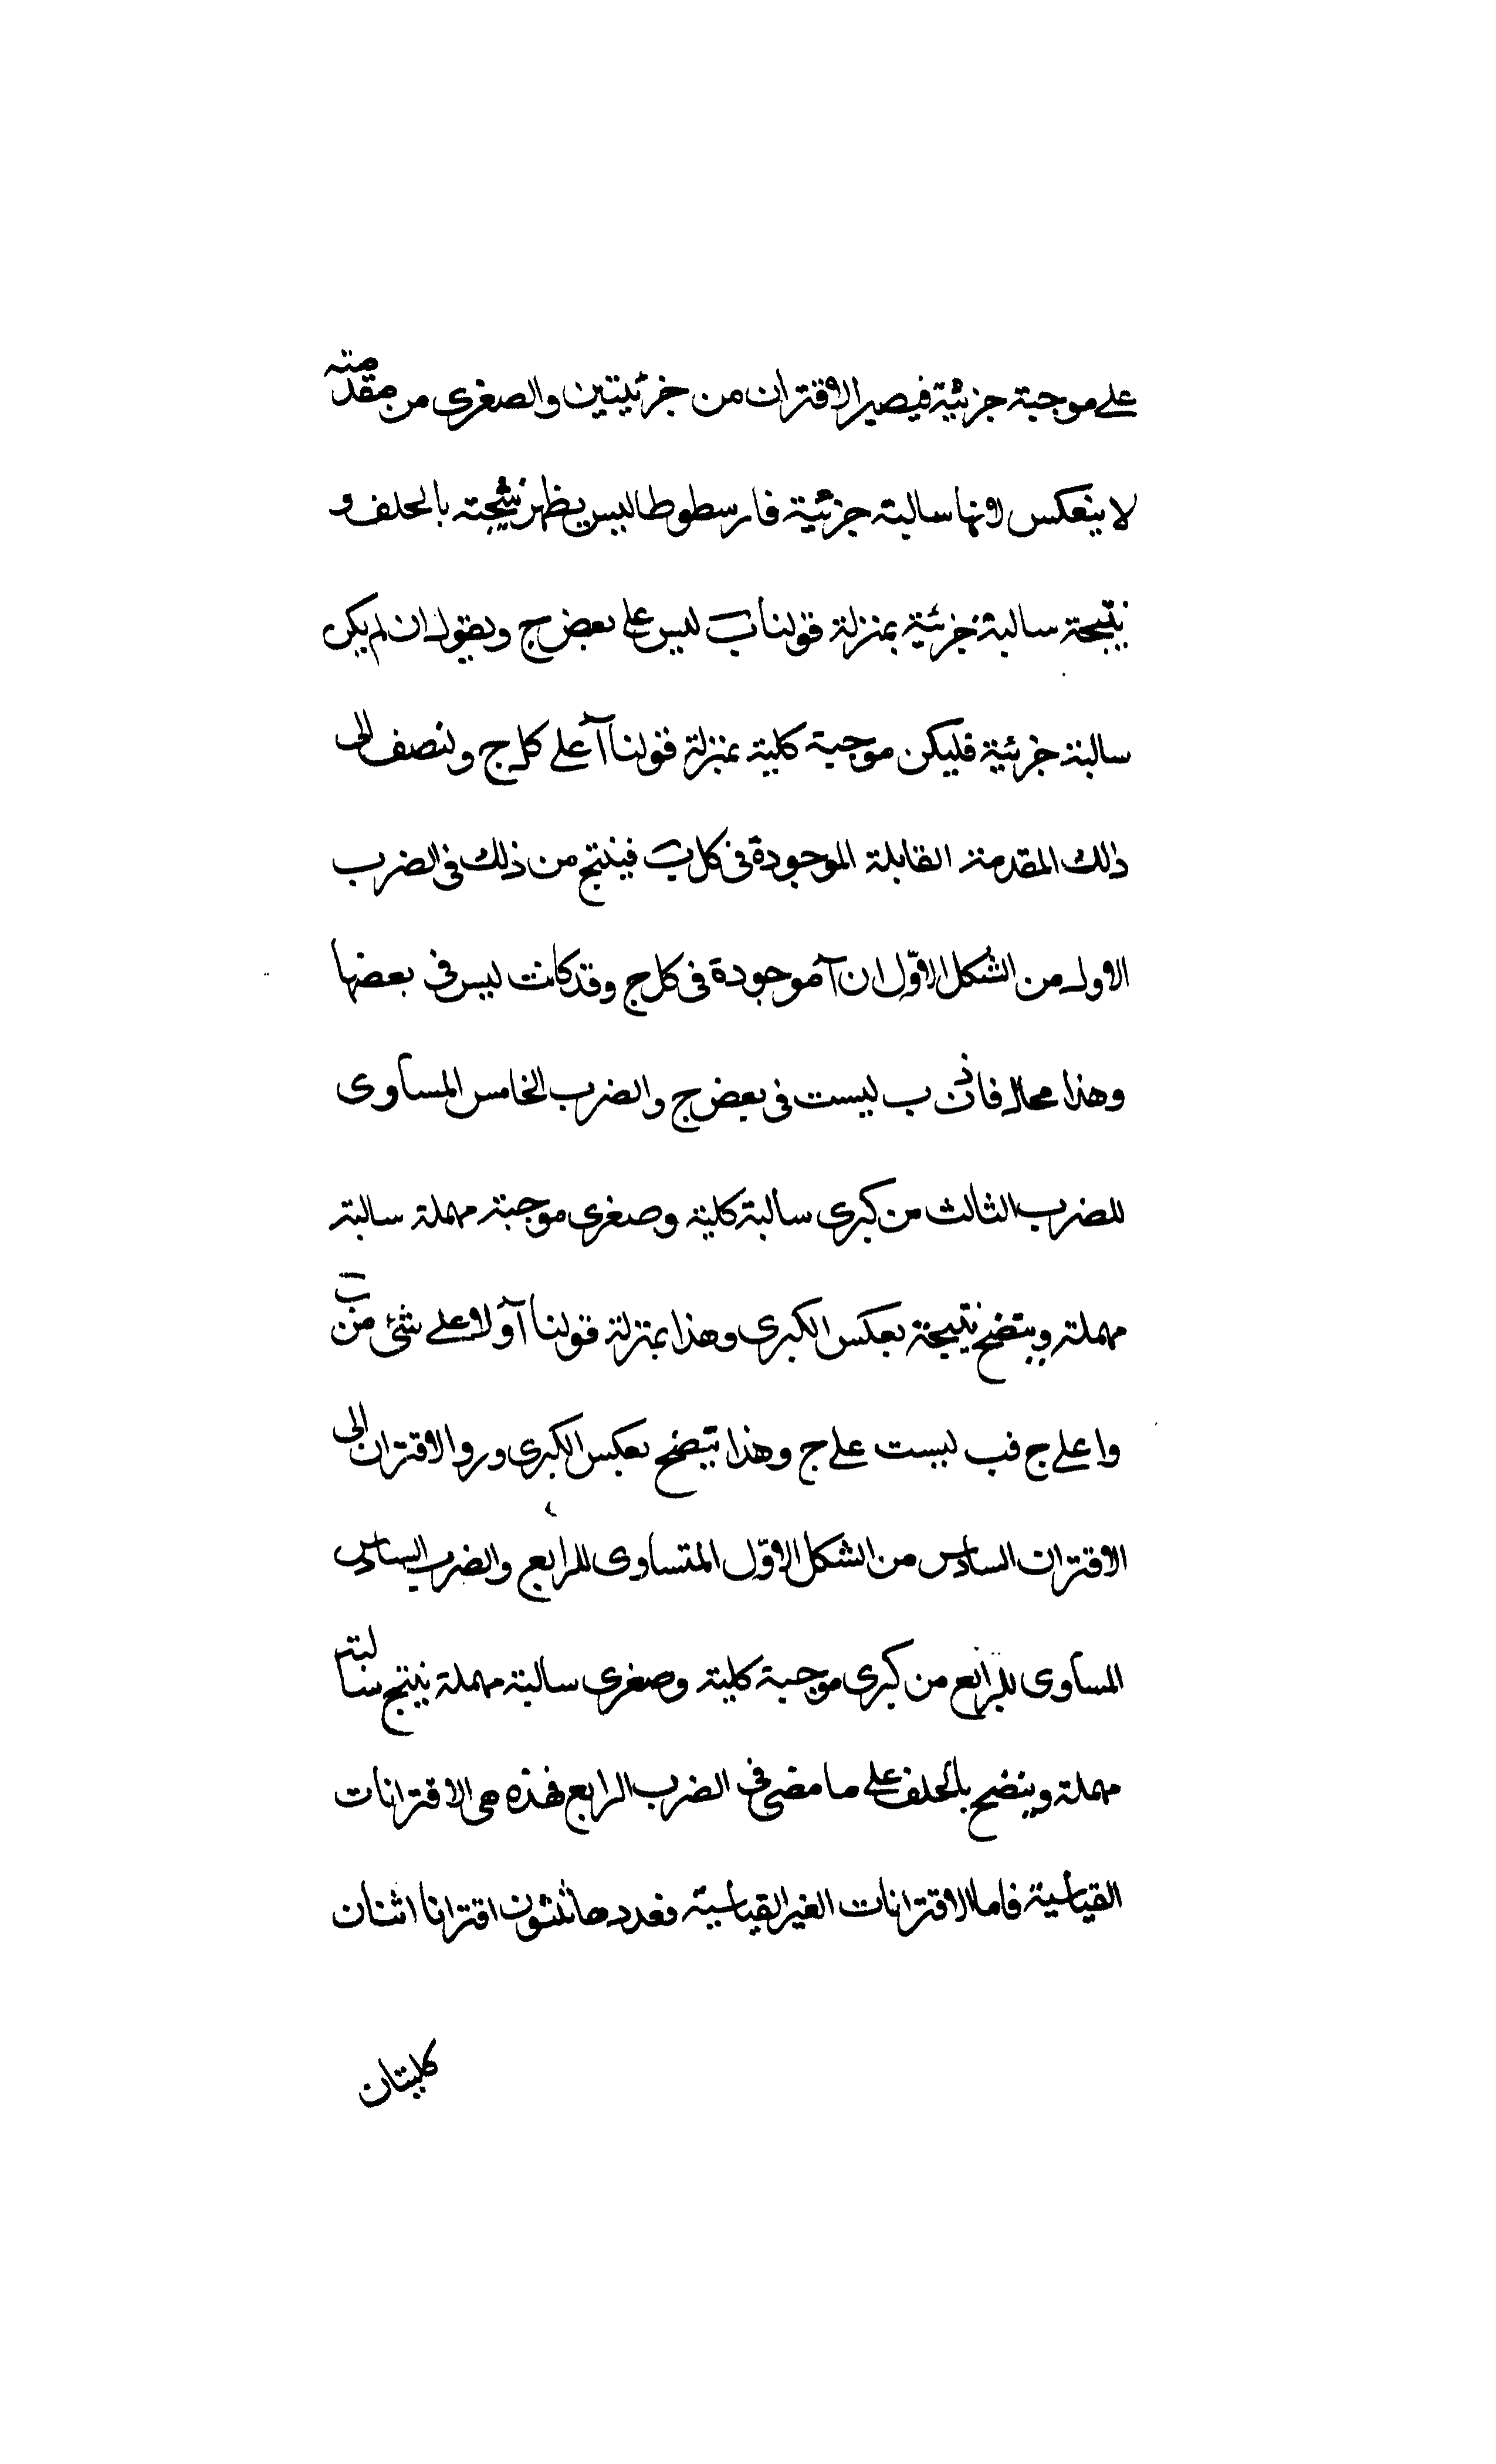 على موجبة جزئية فيصير الاقتران من جزئيتين والصغرى من مقدمته
لا ينعكس لانها سالبة جزئية فارسطوطاليس يظهر نتيجته بالخلف و
نتيجة سالبة جزئية بمنزلة قولنا ب ليس على بعض ج ويقول ان لم يكن
سالبة جزئية فليكن موجبة كلية بمنزلة قولنا آ على كل ج ولنصف الى
ذلك المقدمة القابلة الموجودة فى كل ب فينتج من ذلك فى الضرب
الاول من الشكل الاوّل ان آ موجودة فى كل ج وقد كانت ليس فى بعضها
وهذا محال فاذن ب ليست فى بعض ج والضرب الخامس المساوى
للضرب الثالث من كبرى سالبة كلية وصغرى موجبة مهملة سالبة
مهملة ويتضح نتيجة بعكس الكبرى وهذا بمنزلة قولنا آ ولا على شئ من ب
وا على ج فب ليست على ج وهذا يتضح بعكس الكبرى وروا الاقتران الى
الاقتران السادس من الشكل الاوّل المتساوى للرابع والضرب السادس
المساوى للرابع من كبرى موجبة كلية وصغرى سالبة مهملة ينتج سالبة
مهملة ويتضح بالخلف على ما مضى فى الضرب الرابع فهذه هى الاقترانات
القياسية فاما الاقترانات الغير القياسية فعددها ثلثون اقترانا اثنان
كليتان